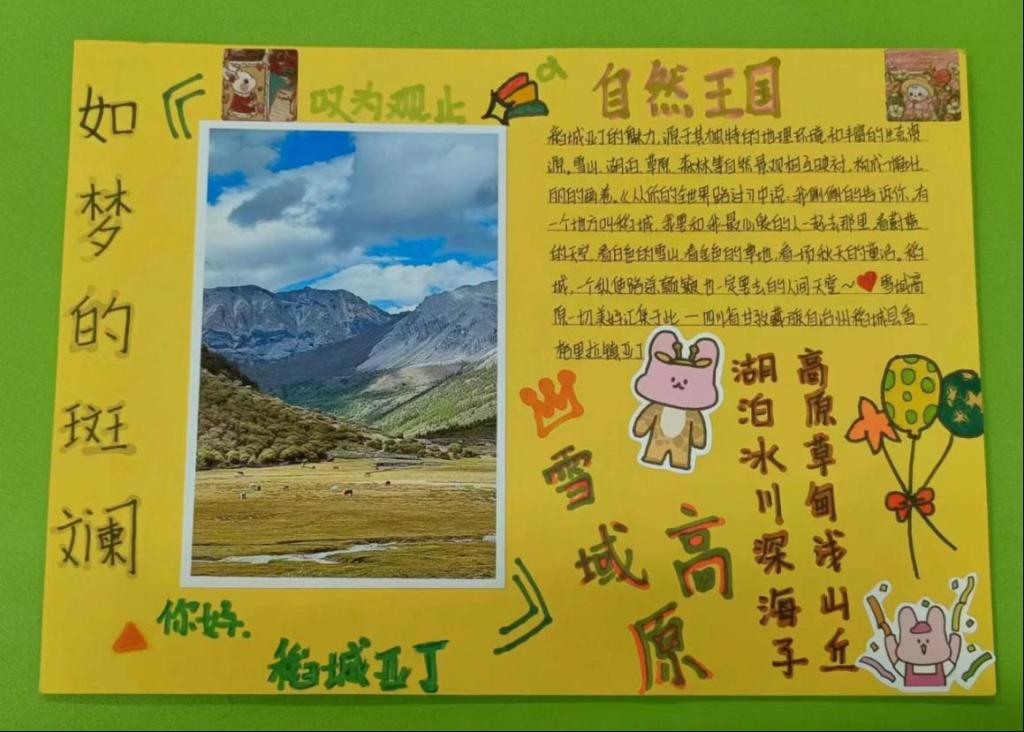 如梦的斑斓
叹为观止
自然王国
稻城亚丁的魅力,源于其独特的地理环境和丰富的生态资
源。雪山、湖泊、草原、森林等自然景观相互映衬,构成一幅壮
丽的画卷。《从你的全世界路过》中说:我侧侧的告诉你,有
一个地方叫稻城,我要和我最心爱的人一起去那里,看蔚蓝
的天空,看白色的雪山,看金色的草地,看一场秋天的童话。稻
城,一个纵使路途颠簸也一定要去的人间天堂~雪域高
原一切美好汇集于此——四川省甘孜藏族自治州稻城县香
格里拉镇亚丁
雪域高原
高原草甸浅山丘
湖泊冰川深海子
你好.
稻城亚丁